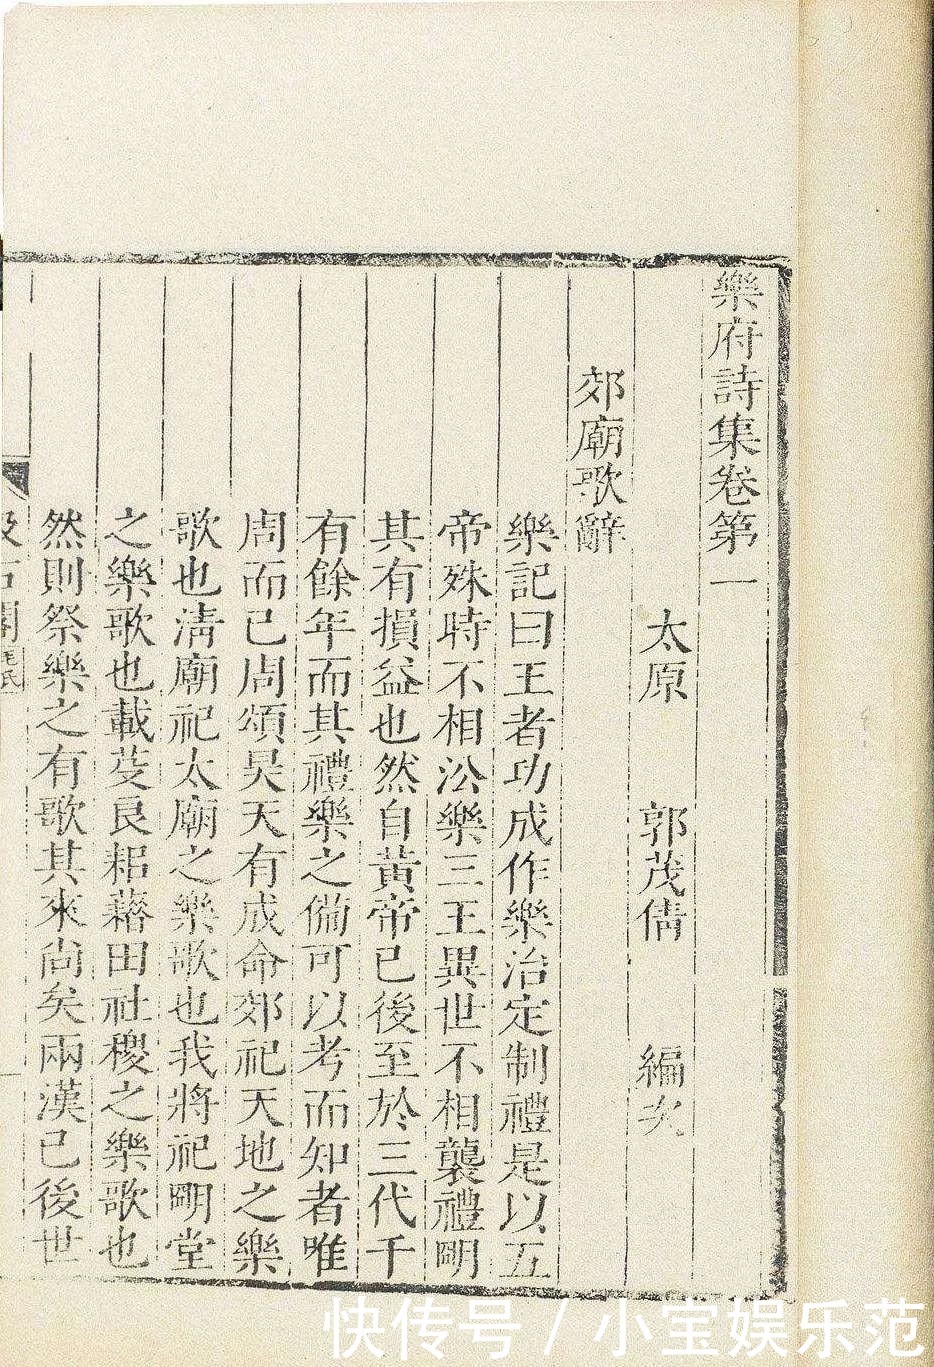 樂府詩集卷第一
太原 郭茂倩 編次
郊廟歌辭
樂記曰王者功成作樂治定制禮是以五
帝殊時不相㳂樂三王異世不相襲禮明
其有損益也然自黃帝已後至於三代千
有餘年而其禮樂之備可以考而知者唯
周而已周頌昊天有成命郊祀天地之樂
歌也淸廟祀太廟之樂歌也我將祀明堂
之樂歌也載芟良耜藉田社稷之樂歌也
然則祭樂之有歌其來尚矣兩漢已後世
快传号/小宝娱乐范